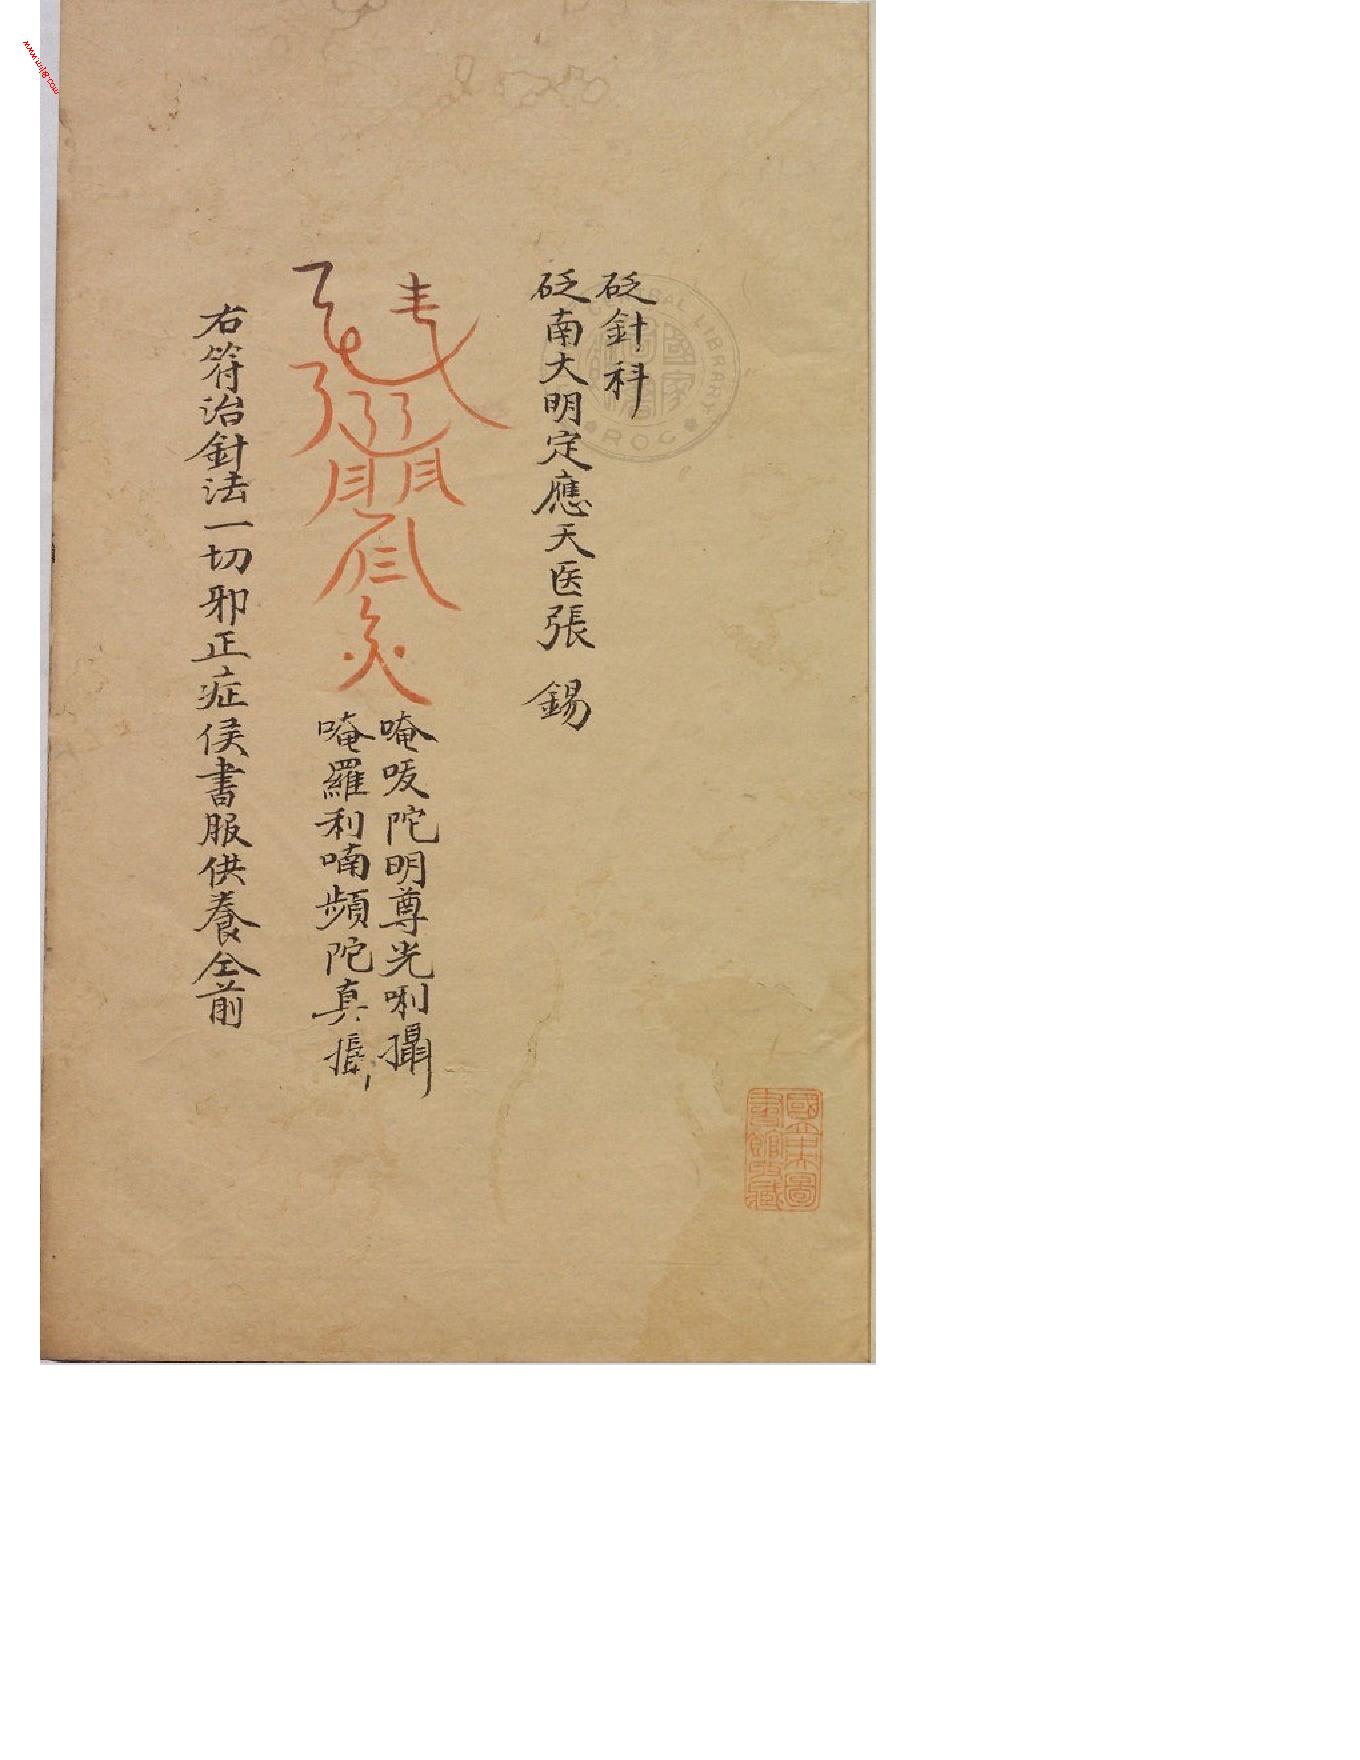 砭針科
砭南大明定應天医張 錫
唵㕵陀明尊光唎攝
唵羅利喃頻陀真
右符治針法一切邪正症侯書服供養仝前
國立中央圖
書館收藏
CENTRAL LIBRARY
ROC
國家
www.